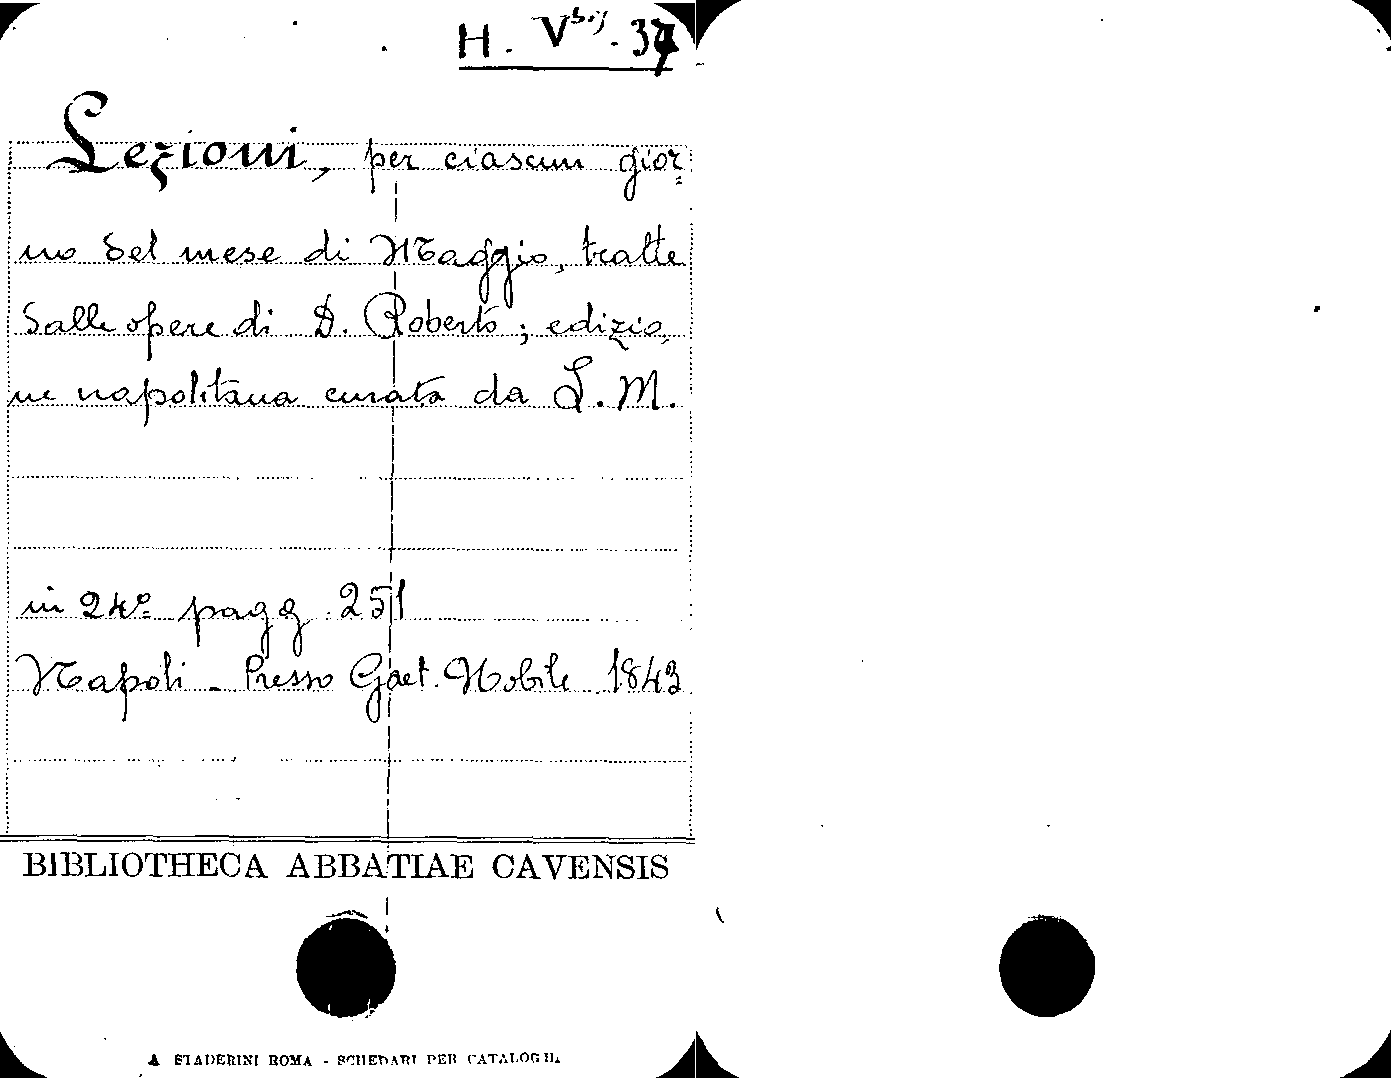 H. V bis. 37
Lezioni, per ciascun gior=
no del mese di Maggio, tratte
dalle opere di D. Roberto; edizio,
ne napolitana curata da L. M.
in 24º pagg. 251
Napoli - Presso Gaet. Nobile 1843
BIBLIOTHECA ABBATIAE CAVENSIS
STADERINI ROMA - SCHEDARI PER CATALOGHI